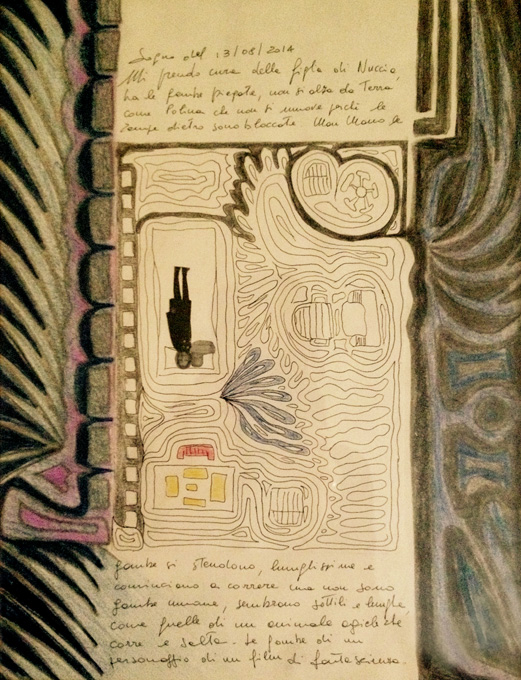 Sogno del 13/08/2014
Mi prendo cura della figlia di Nuccio,
ha le gambe piegate, non si alza da Terra
come Polina che non si muove perché le
zampe dietro sono bloccate Man Mano le
gambe si stendono, lunghissime e
cominciano a correre ma non sono
gambe umane, sembrano sottili e lunghe,
come quelle di un animale agile che
corre e salta. Le gambe di un
personaggio di un film di fantascienza.